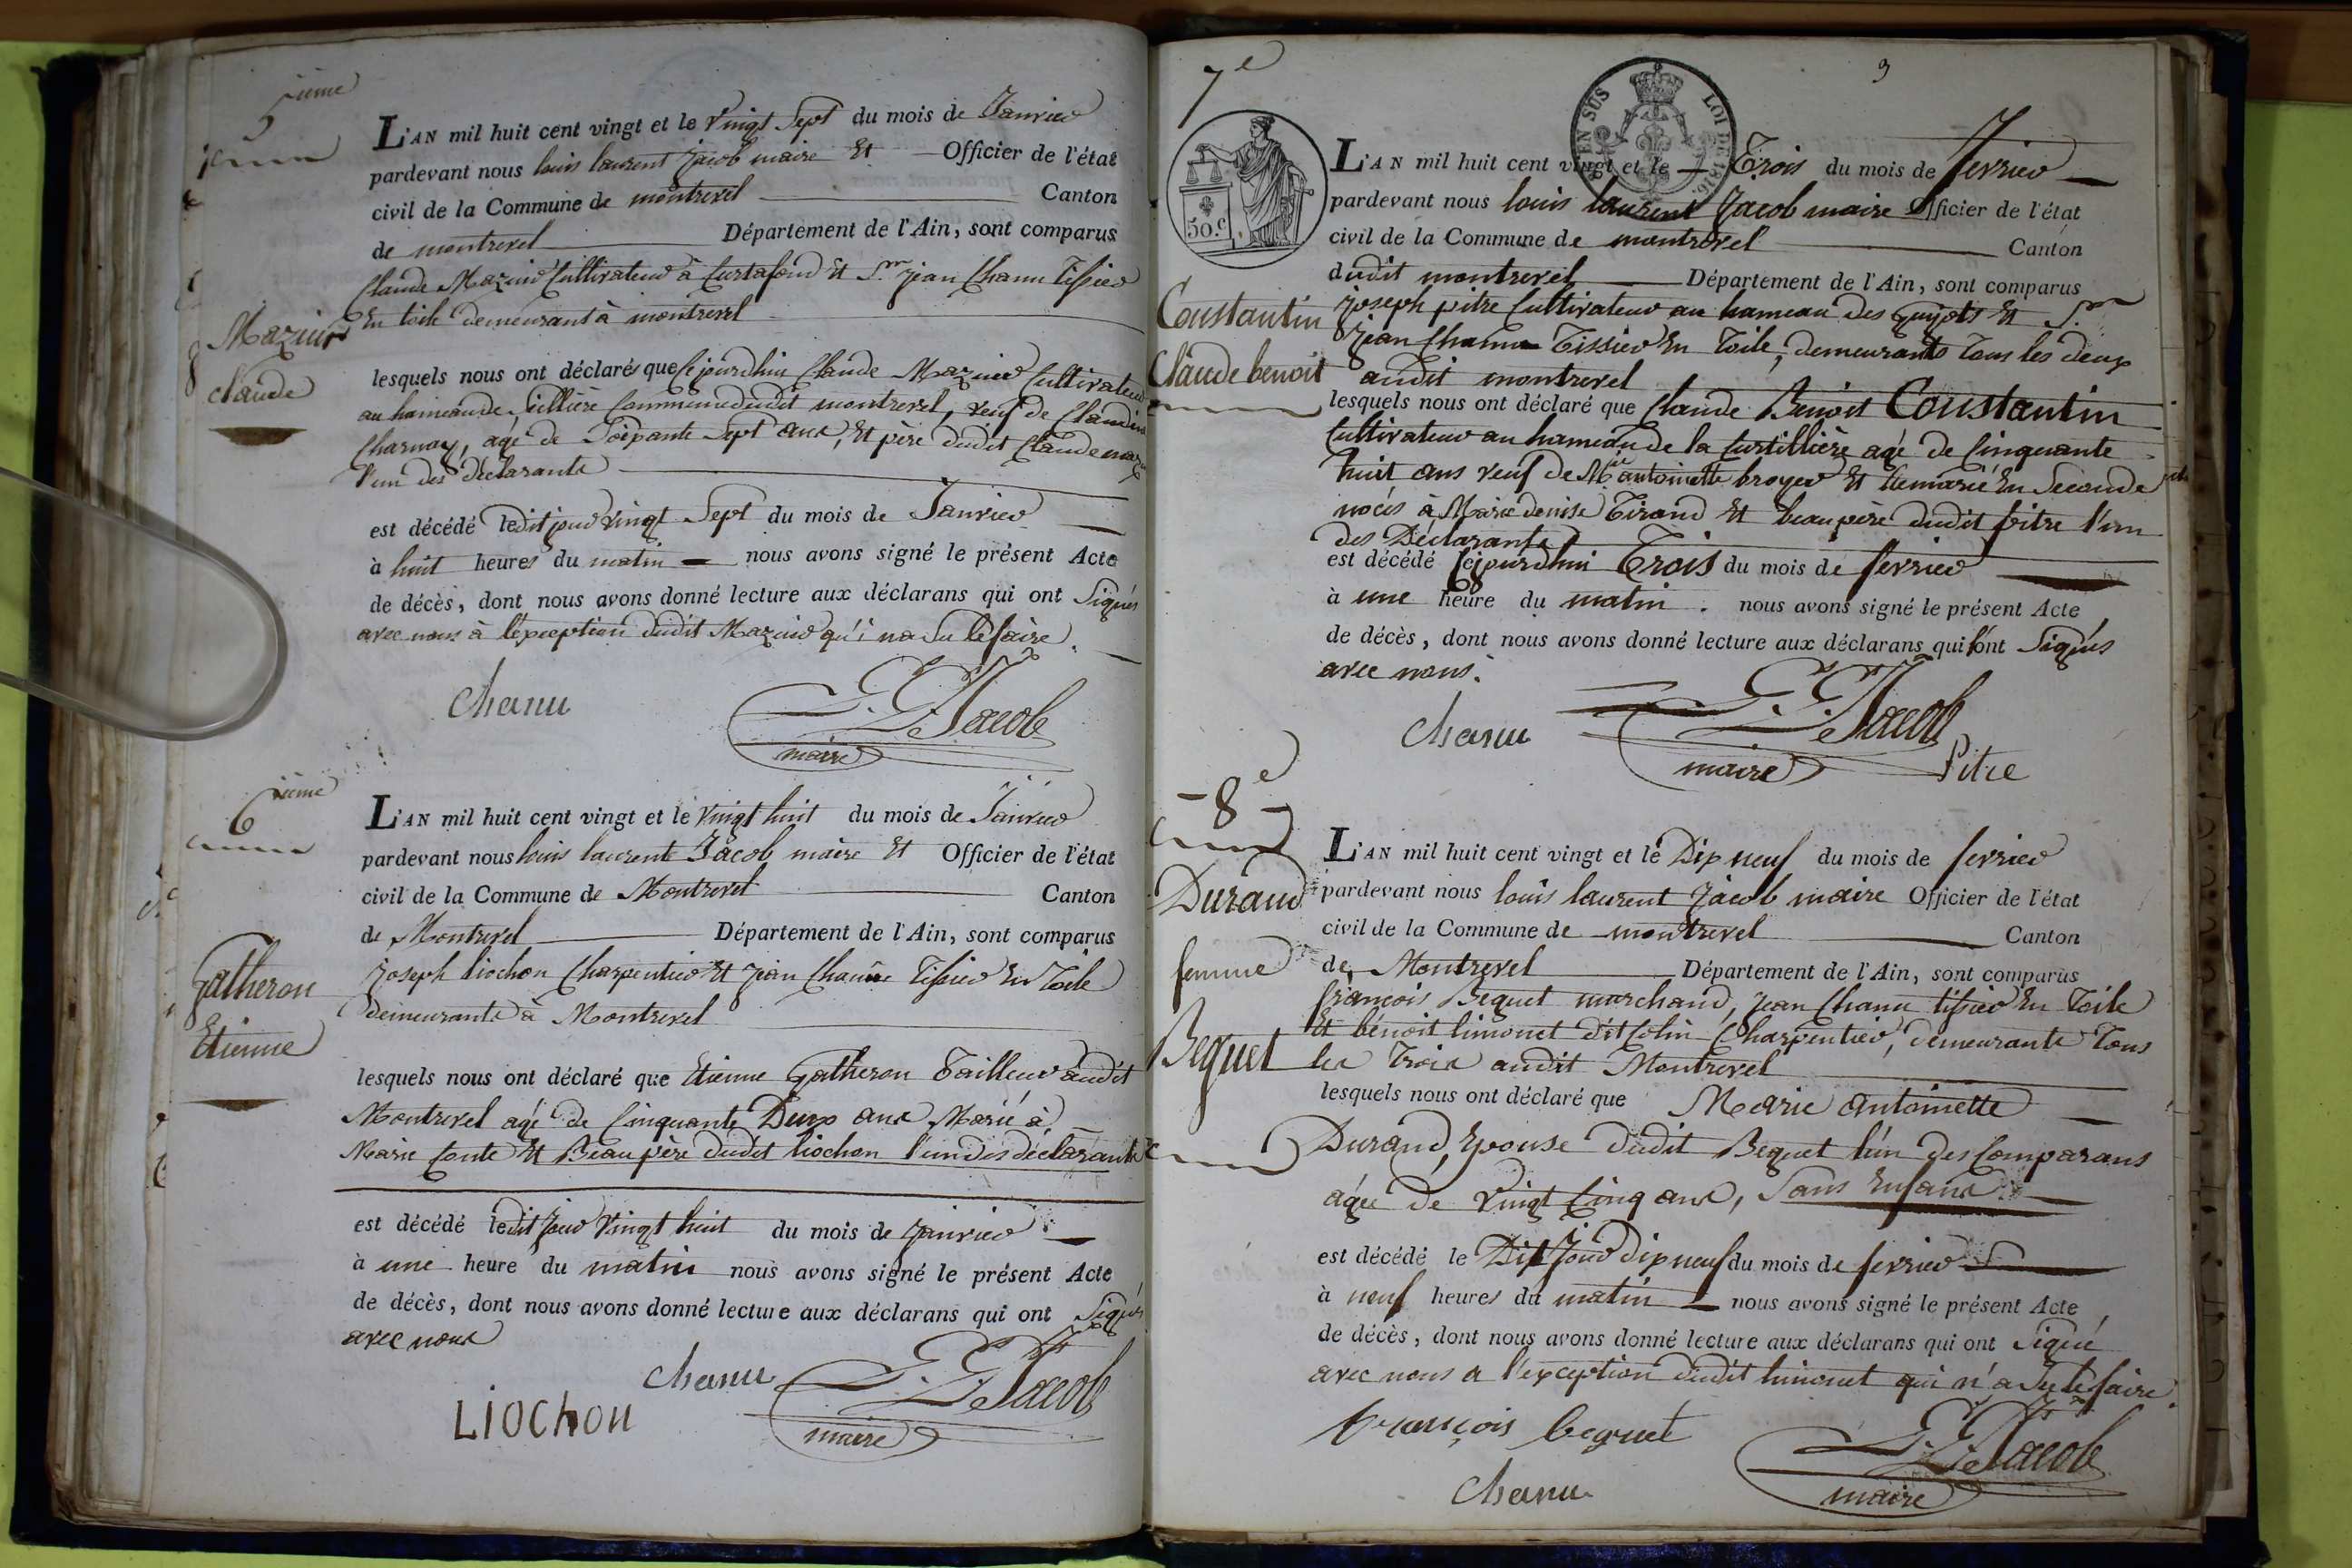 5
ieme
L'AN mil huit cent vingt et le vingt Sept du mois de Janvier
pardevant nous louis laurent Jacob maire Et Officier de l'état
civil de la Commune de montrevel Canton
de montrevel Département de l'Ain, sont comparus
Claude Mazuir Cultivateur à Curtafond Et Sr. jean Chanu Tissier
En toile demeurant à montrevel
Mazuir
claude
lesquels nous ont déclarés que Cejourdhui Claude Mazuir Cultivateur
au hameau de Commune dudit montrevel, veuf de Claudine
Charnay, agé de Soixante Sept ans, Et père dudit Claude
l'un des déclarants
est décédé ledit jour vingt Sept du mois de Janvier
à huit heures du matin nous avons signé le présent Acte
de décès, dont nous avons donné lecture aux déclarans qui ont Signés
avec nous à l'exception dudit Mazuir qui na Su le faire.
chanu
L. L. Jacob
maire
6
ieme
L'AN mil huit cent vingt et le vingt huit du mois de Janvier
pardevant nous louis laurent Jacob maire Et Officier de l'état
civil de la Commune de Montrevel Canton
de Montrevel Département de l'Ain, sont comparus
joseph liochon Charpentier Et jean Chanu Tissier En Toile
demeurants à Montrevel
Gatheron
Etienne
lesquels nous ont déclaré que Etienne Gatheron Tailleur audit
Montrevel agé de Cinquante Deux ans Marié à
Marie Conte Et Beaupère dudit liochon l'un des déclarants
est décédé ledit jour vingt huit du mois de janvier
à une heure du matin nous avons signé le présent Acte
de décès, dont nous avons donné lecture aux déclarans qui ont Signés
avec nous
chanu
L. L. Jacob
maire
LIOCHON
7e
3
EN SUS
LOI DE 1816.
50.c
L'AN mil huit cent vingt et le Trois du mois de fevrier
pardevant nous louis laurent Jacob maire Officier de l'état
civil de la Commune de montrevel Canton
dudit montrevel Département de l'Ain, sont comparus
Constantin
Claude benoit
joseph pitre Cultivateur au hameau des Guyots Et Sr.
jean Chanu Tissier En Toile, demeurants Tous les deux
audit montrevel
lesquels nous ont déclaré que Claude Benoit Constantin
Cultivateur au hameau de la Curtillière agé de Cinquante
huit ans veuf de Mie antoinette broyer Et Remarié En Seconde
noces à Marie denise Tirand Et beaupère dudit pitre l'un
des Déclarants
est décédé Cejourdhui Trois du mois de fevrier
à une heure du matin. nous avons signé le présent Acte
de décès, dont nous avons donné lecture aux déclarans qui l'ont Signés
avec nous.
chanu
L. L. Jacob
maire
Pitre
8e
L'AN mil huit cent vingt et le Dix neuf du mois de fevrier
pardevant nous louis laurent Jacob maire Officier de l'état
civil de la Commune de montrevel Canton
de Montrevel Département de l'Ain, sont comparus
Durand
femme
Bequet
françois Bequet marchand, jean Chanu tissier En Toile
Et bénoit limonet dit Colin Charpentier, demeurants Tous
les Trois audit Montrevel
lesquels nous ont déclaré que Marie antoinette
Durand, Epouse dudit Bequet l'un des Comparans
agée de vingt Cinq ans, Sans Enfans
est décédé le Dit Jour dix neuf du mois de fevrier
à neuf heures du matin nous avons signé le présent Acte
de décès, dont nous avons donné lecture aux déclarans qui ont Signé
avec nous a l'exception dudit limonet qui n'a Su le faire.
françois bequet
L. L. Jacob
maire
chanu